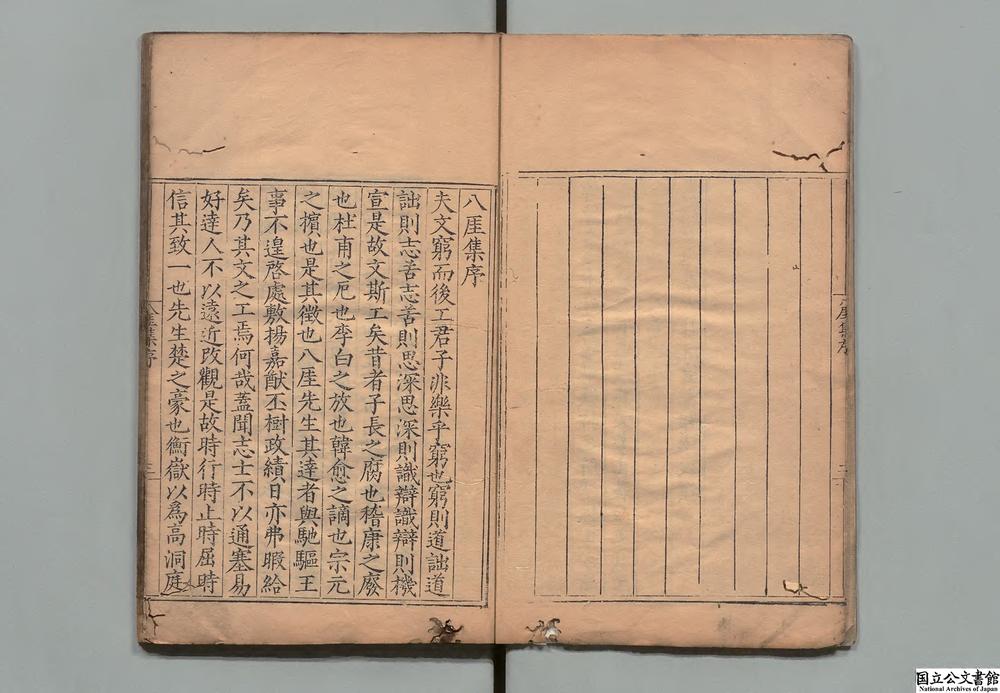 厓集序
二
八厓集序
夫文窮而後工君子非樂乎窮也窮則道詘道
詘則志苦志苦則思深思深則識辯識辯則機
宣是故文斯工矣昔者子長之腐也嵇康之廢
也杜甫之厄也李白之放也韓愈之謫也宗元
之擯也是其徵也八厓先生其達者與馳驅王
事不遑啓處敷揚嘉猷丕樹政績日亦弗暇給
矣乃其文之工焉何哉蓋聞志士不以通塞易
好達人不以遠近改觀是故時行時止時屈時
信其致一也先生楚之豪也衡嶽以爲高洞庭
厓集序
国立公文書館
National Archives of Japan